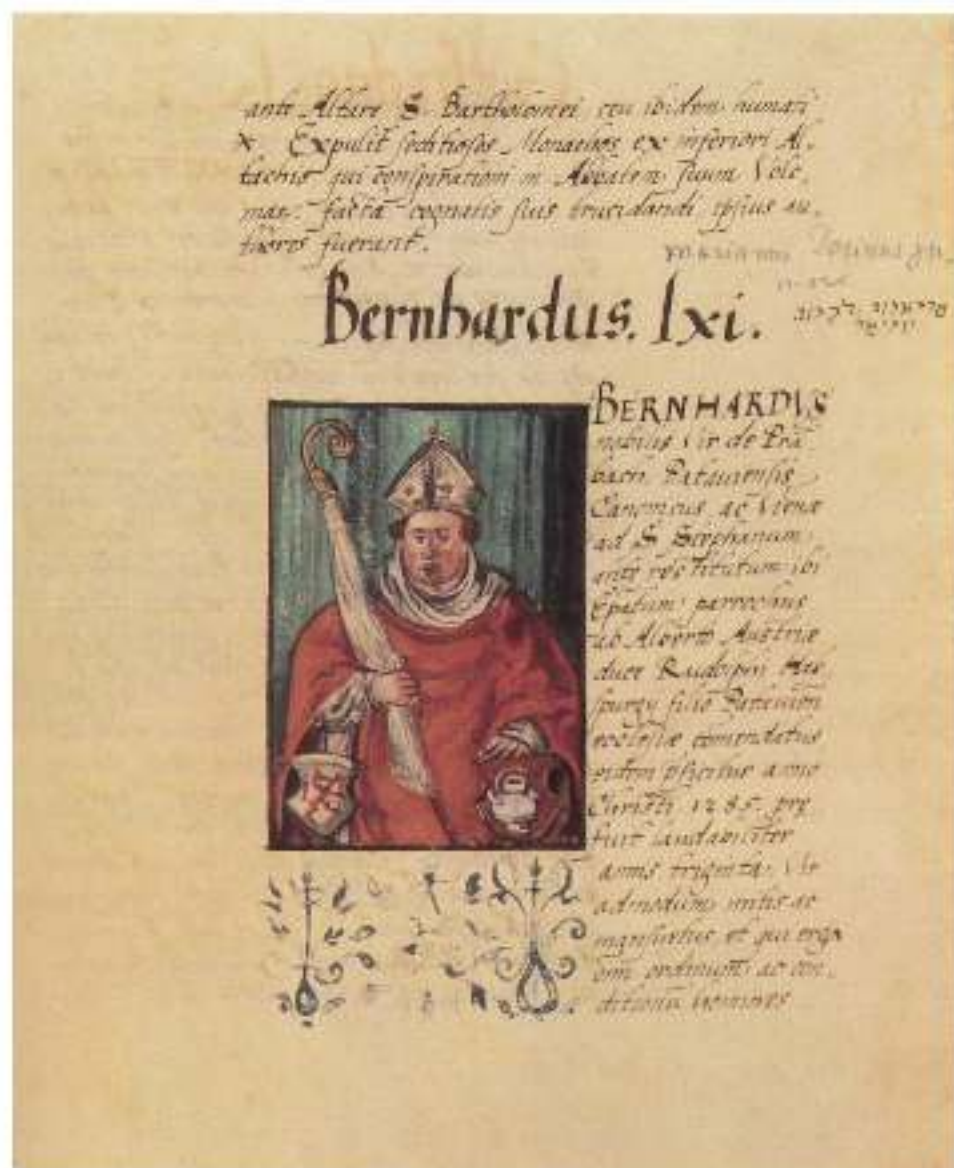 ante Altare S. Bartholomei ceu ibidem humati
X Expulit seditiosos Monachos ex inferiori Al-
tachis qui conspiration in Abbatem suum Volc-
mar. facta cognatis suis trucidandi ipsius au-
tores fuerant.
Bernhardus. lxi.
BERNHARDUS
nobilis Vir de Pra
bach Patauiensis
Canonicus ac Vienæ
ad S. Stephanum
ante restitutum ibi
Epatum parrochus
ab Alberto Austriæ
duce Rudolphi Has
purgy filio Patauien
ecclesiæ comendatus
eidem pficitur anno
Christi 1285. pre
fuit laudabiliter
annis triginta. Vir
admodum mitis ac
mansuetus et qui erga
omn ordinum ac con-
ditionu homines